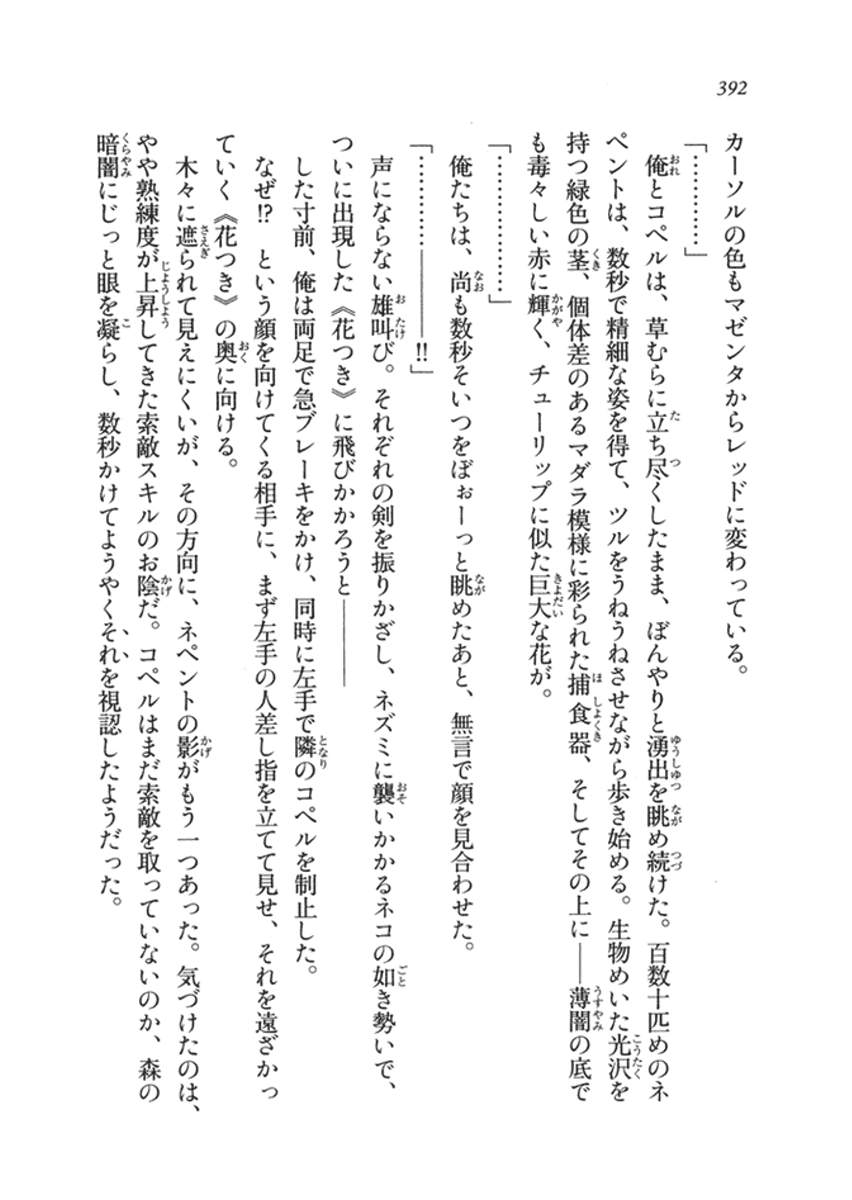 392
カーソルの色もマゼンタからレッドに変わっている。
「…………」
俺とコペルは、草むらに立ち尽くしたまま、ぼんやりと湧出を眺め続けた。百数十匹めのネ
ペントは、数秒で精細な姿を得て、ツルをうねうねさせながら歩き始める。生物めいた光沢を
持つ緑色の茎、個体差のあるマダラ模様に彩られた捕食器、そしてその上に――薄闇の底で
も毒々しい赤に輝く、チューリップに似た巨大な花が。
「………………」
俺たちは、尚も数秒そいつをぼぉーっと眺めたあと、無言で顔を見合わせた。
「…………――――!!」
声にならない雄叫び。それぞれの剣を振りかざし、ネズミに襲いかかるネコの如き勢いで、
ついに出現した《花つき》に飛びかかろうと――――
した寸前、俺は両足で急ブレーキをかけ、同時に左手で隣のコペルを制止した。
なぜ!?　という顔を向けてくる相手に、まず左手の人差し指を立てて見せ、それを遠ざかっ
ていく《花つき》の奥に向ける。
木々に遮られて見えにくいが、その方向に、ネペントの影がもう一つあった。気づけたのは、
やや熟練度が上昇してきた索敵スキルのお陰だ。コペルはまだ索敵を取っていないのか、森の
暗闇にじっと眼を凝らし、数秒かけてようやくそれを視認したようだった。